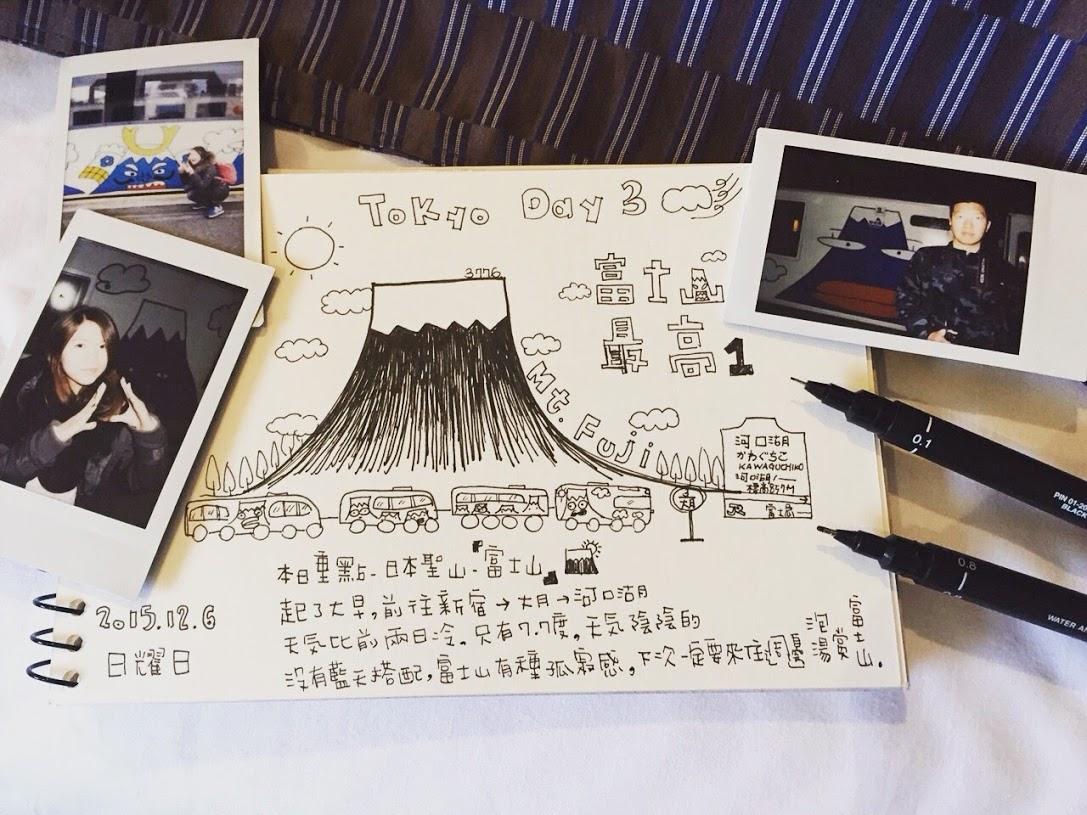 Tokyo Day 3
3776
富士山
最高1
Mt. Fuji
河口湖
かわぐちこ
KAWAGUCHIKO
河口湖
標高857M
富士急
大月
本日重點-日本聖山-『富士山』
起了大早,前往新宿→大月→河口湖
天氣比前兩日冷。只有7.7度,天氣陰陰的
沒有藍天搭配,富士山有種孤寂感,下次一定要來住周邊泡湯賞富士山.
2015.12.6
日曜日
0.1
PIN 01-20
BLACK
0.8
WATER